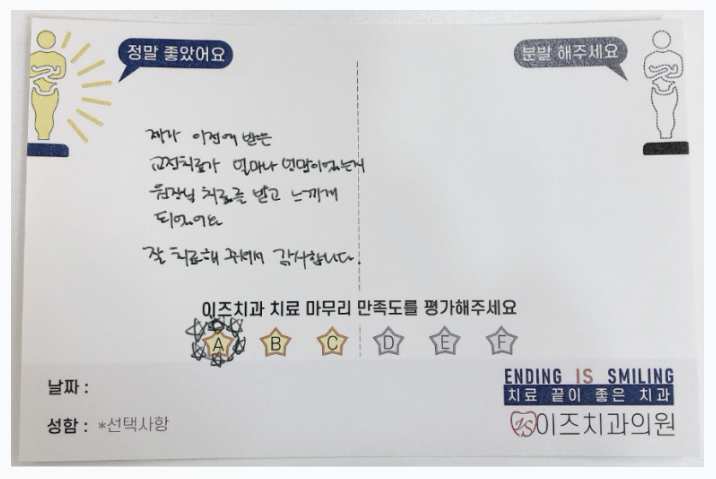 정말 좋았어요
분발 해주세요
제가 이전에 받은
교정치료가 얼마나 엉망이었는지
원장님 치료를 받고 느끼게
되었어요
잘 치료해 주셔서 감사합니다.
이즈치과 치료 마무리 만족도를 평가해주세요
A B C D E F
날짜 :
성함 : *선택사항
ENDING IS SMILING
치료 끝이 좋은 치과
IS 이즈치과의원